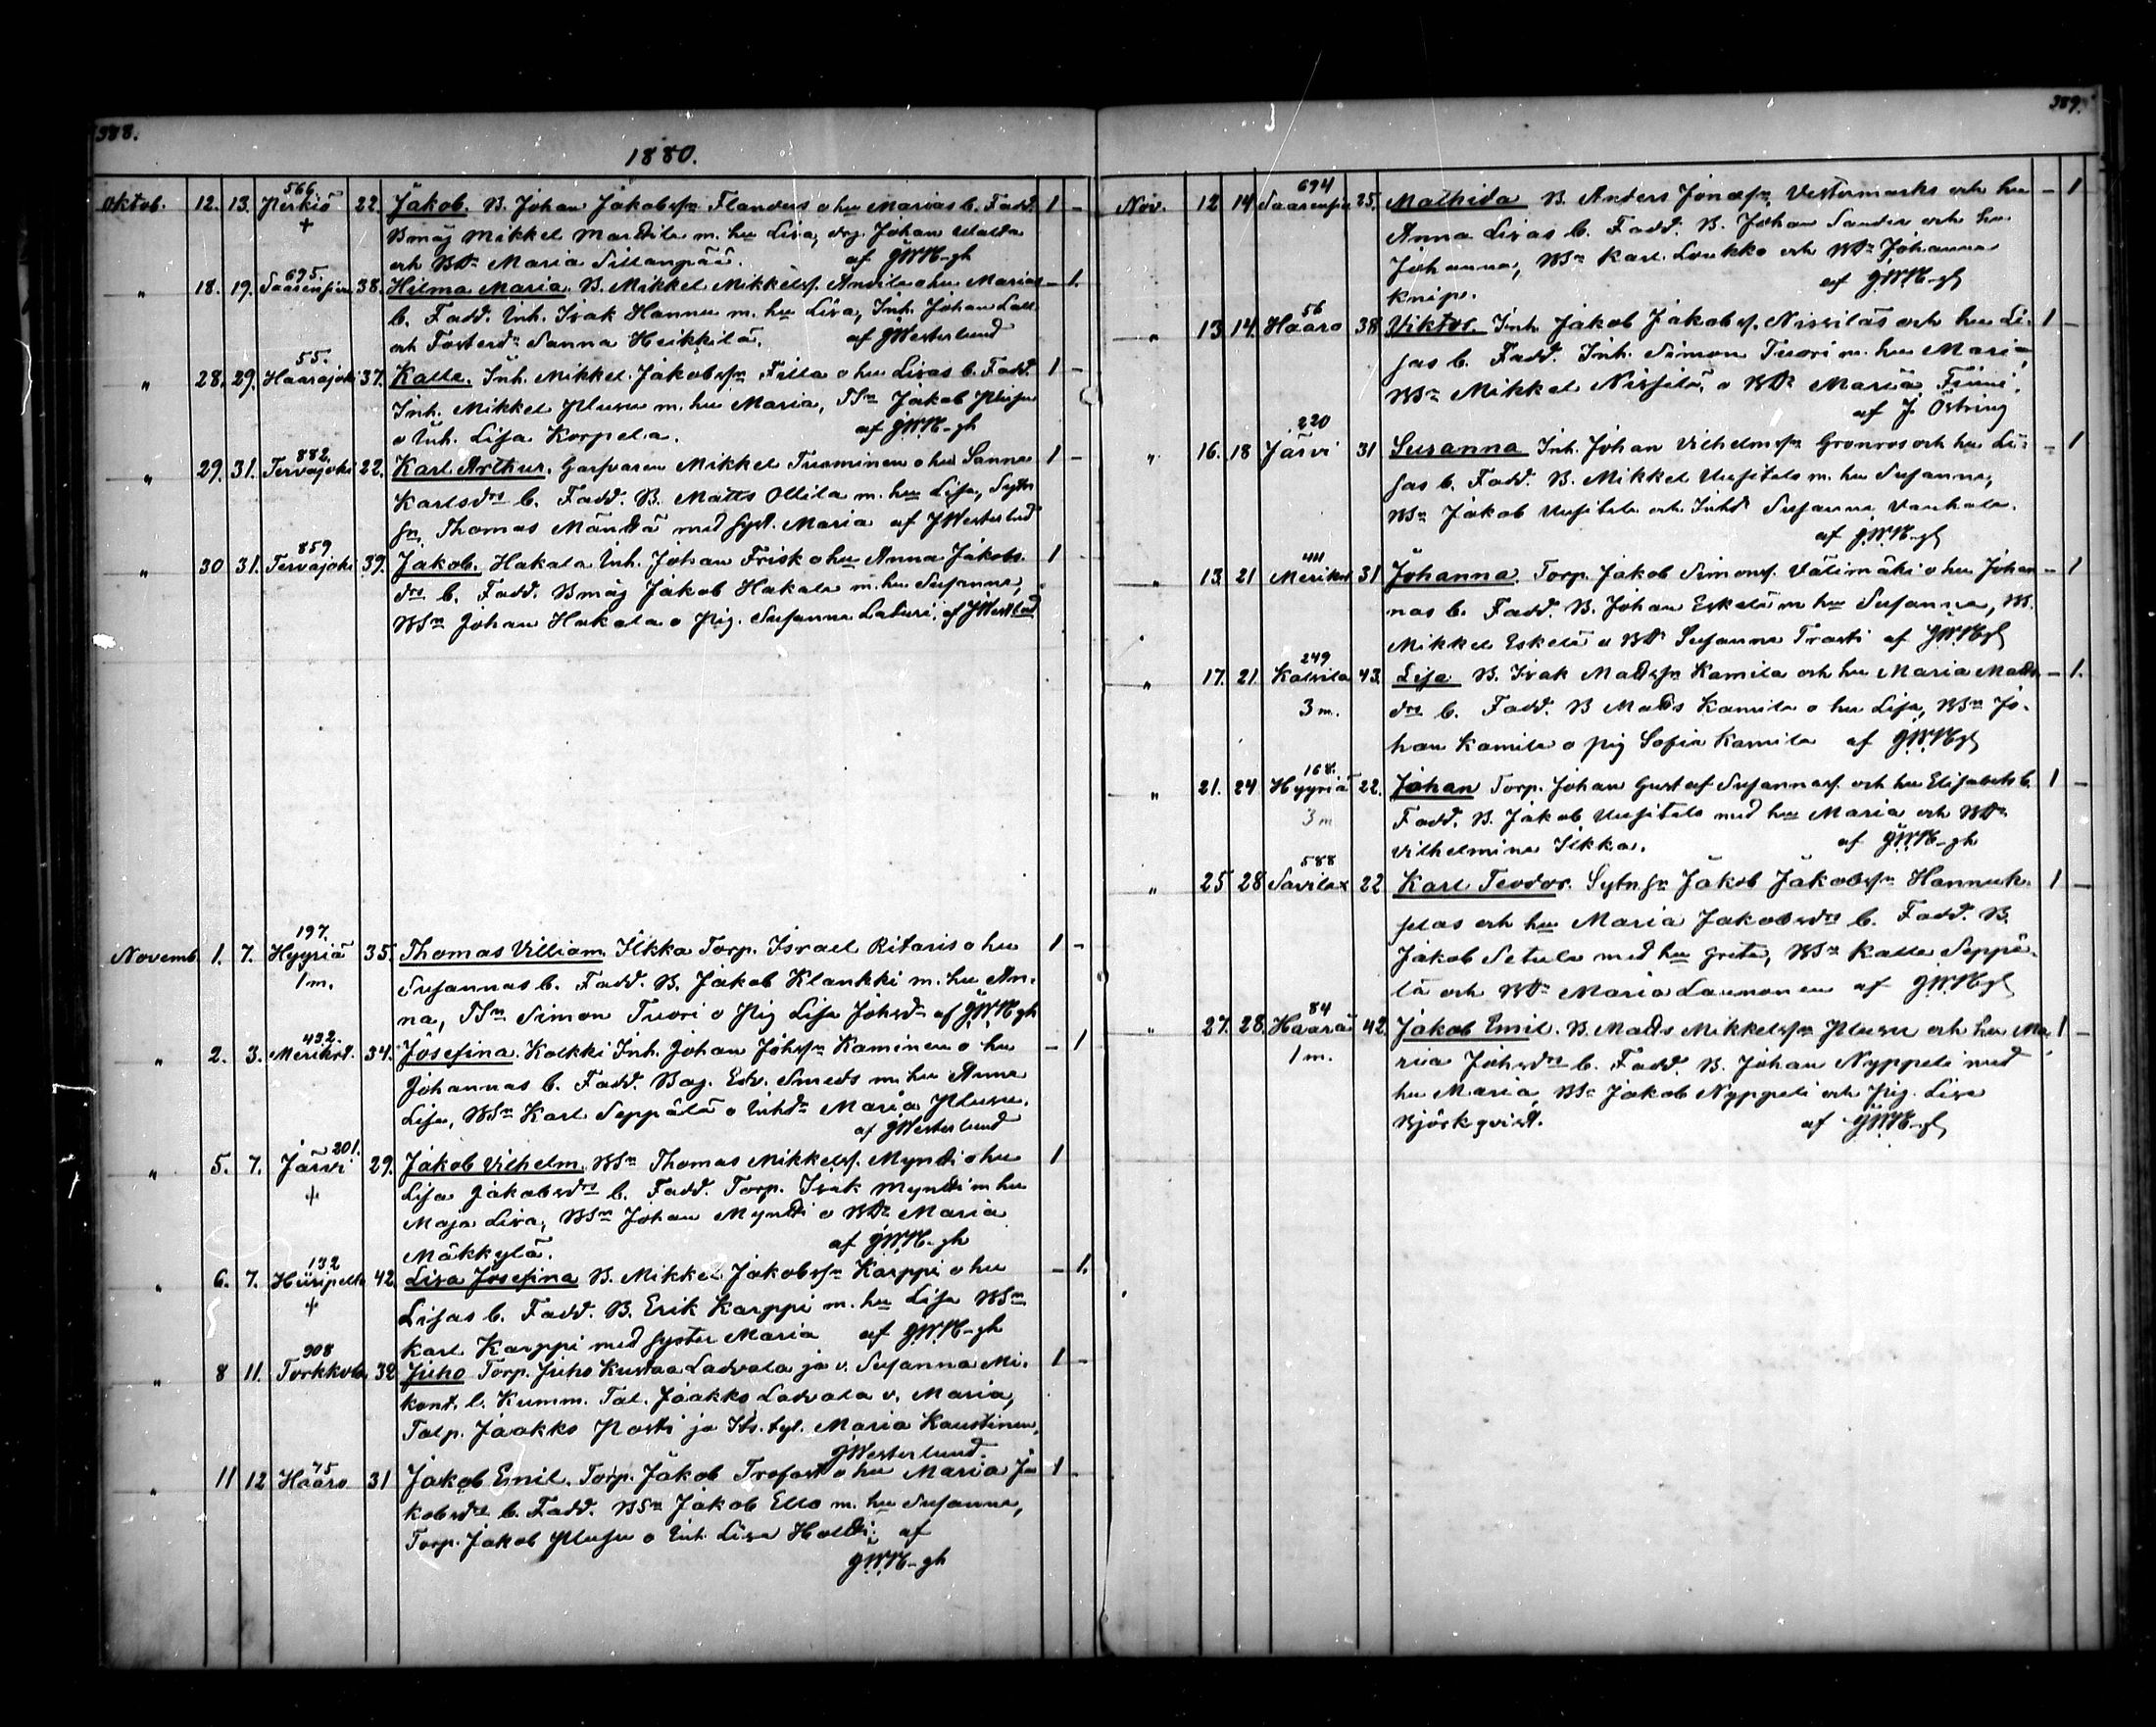 388.
1880.
566.
Oktob. 12. 13. Perkiö 22. Jakob. B. Johan Jakobssn Flanders o hu Marias b. Fadd. 1 -
+ Bmåg Mikkel Marttila m. hu Lisa, drg. Johan
och Bdr Maria Sillanpää. af GWH-gh
695.
" 18. 19. Saarenpää 38. Hilma Maria. B. Mikkel Mikkelsf. Anttila o hu Marias - 1.
b. Fadd. Inh. Isak Hannu m. hu Lisa, Inh. Johan
och Fosterdr Sanna Heikkilä. af JWesterlund
55.
" 28. 29. Haarajoki 37. Kalle. Inh. Mikkel Jakobssn Filla o hu Lisas b. Fadd. 1 -
Inh. Mikkel Plusu m. hu Maria, TSn Jakob
o Inh. Lisa Korpela. af GWH-gh
882.
" 29. 31. Tervajoki 22. Karl Arthur. Garfvaren Mikkel Tuominen o hu Sanna 1 -
Karlsdrs b. Fadd. B. Matts Ollila m. hu Lisa, Sytn
sn Thomas Mänttä med syst. Maria af JWesterlund
859
" 30 31. Tervajoki 39. Jakob. Hakala Inh. Johan Frisk o hu Anna Jakobs- 1
drs b. Fadd. Bmåg Jakob Hakala m. hu Susanna,
BSn Johan Hakala o Pig. Susanna Laturi. af JWestlud
197.
Novemb. 1. 7. Hyyriä 35. Thomas Villiam. Ilkka Torp. Israel Ritaris o hu 1 -
1 m. Susannas b. Fadd. B. Jakob Klankki m. hu An-
na, TSn Simon Tuori o Pig Lisa Johsdr af GWHgh
432.
" 2. 3. Merikrt. 34. Josefina. Kolkki Inh. Johan Johssn Kaminen o hu - 1
Johannas b. Fadd. Bag. Edv. Smeds m. hu Anna
Lisa, BSn Karl Seppälä o Inhdr Maria Plusu.
af JWesterlund
201.
" 5. 7. Järvi 29. Jakob Vilhelm. BSn Thomas Mikkelsf. Myntti o hu 1
+ Lisa Jakobsdrs b. Fadd. Torp. Isak Myntti m hu
Maja Lisa, BSn Johan Myntti o Bdr Maria
Mäkkylä. af GWH-gh
132
" 6. 7. Hiiripelto 42. Lisa Josefina B. Mikkel Jakobssn Karppi o hu - 1.
+ Lisas b. Fadd. B. Erik Karppi m. hu Lisa BSn
Karl Karppi med syster Maria af GWH-gh
908
" 8 11. Torkkola 32 Juho Torp. Juho Kustaa Ladvala ja v. Susanna Mi- 1 -
kont. l. Kumm. Tal. Jaakko Ladvala v. Maria,
Talp. Jaakko Posti ja Its. tyt. Maria Kaustinen,
JWesterlund.
75
" 11 12 Haaro 31 Jakob Emil. Torp. Jakob Trofast o hu Maria Ja 1 -
kobsdrs b. Fadd. BSn Jakob Ello m. hu Susanna,
Torp. Jakob Plusu o Inh. Lisa Holtti. af
GWH-gh
389.
694
Nov. 12 14 Saarenpää 25. Mathida B. Anders Jonassn Vestermarks och hu - 1
Anna Lisas b. Fadd. B. Johan Sandin och hu
Johanna, BSn Karl Loukko och Bdr Johanna
Knip. af GWH-gh
56
" 13 14. Haaro 38 Viktor. Inh. Jakob Jakobsf. Nissiläs och hu Li- 1 -
sas b. Fadd. Inh. Simon Tuori m. hu Maria,
BSn Mikkel Nissilä o Bdr Maria Finni.
af J. Östring
220
" 16. 18 Järvi 31 Susanna Inh. Johan Vilhelmssn Grönroos och hu Li- - 1
sas b. Fadd. B. Mikkel Uusitalo m. hu Susanna,
BSn Jakob Uusitalo och Inhdr Susanna Vanhala.
af GWH-gh
411
" 13 21 Merikrt 31 Johanna. Torp. Jakob Simonsf. Välimäki o hu Johan- - 1
nas b. Fadd. B. Johan Eskelä m hu Susanna, B.
Mikkel Eskelä o Bdr Susanna Trasti af GWHgh
249
" 17. 21 Kalsila 43. Lisa B. Isak Matssn Kamila och hu Maria Matts- - 1.
3 m. drs b. Fadd. B Matts Kamila o hu Lisa, BSn Jo-
han Kamila o pig Sofia Kamila af GWHgh
168.
" 21. 24 Hyyriä 22. Johan Torp. Johan Gustaf Susannasf. och hu Elisabets b. 1 -
3 m Fadd. B. Jakob Uusitalo med hu Maria och Bdr
Vilhelmina Ilkka. af GWH-gh
588
" 25 28 Savilax 22 Karl Teodor. Sytn.sn Jakob Jakobssn Hannuk- 1 -
selas och hu Maria Jakobsdrs b. Fadd. B.
Jakob Setula med hu Greta, BSn Kalle Seppä-
lä och Bdr Maria Launonen af GWHgh
84
" 27. 28. Haarä 42. Jakob Emil. B. Matts Mikkelssn Plusu och hu Ma- 1 -
1 m. ria Johsdrs b. Fadd. B. Johan Nyppeli med
hu Maria, BSn Jakob Nyppeli och Pig. Lisa
Björkqvist. af GWH-gh